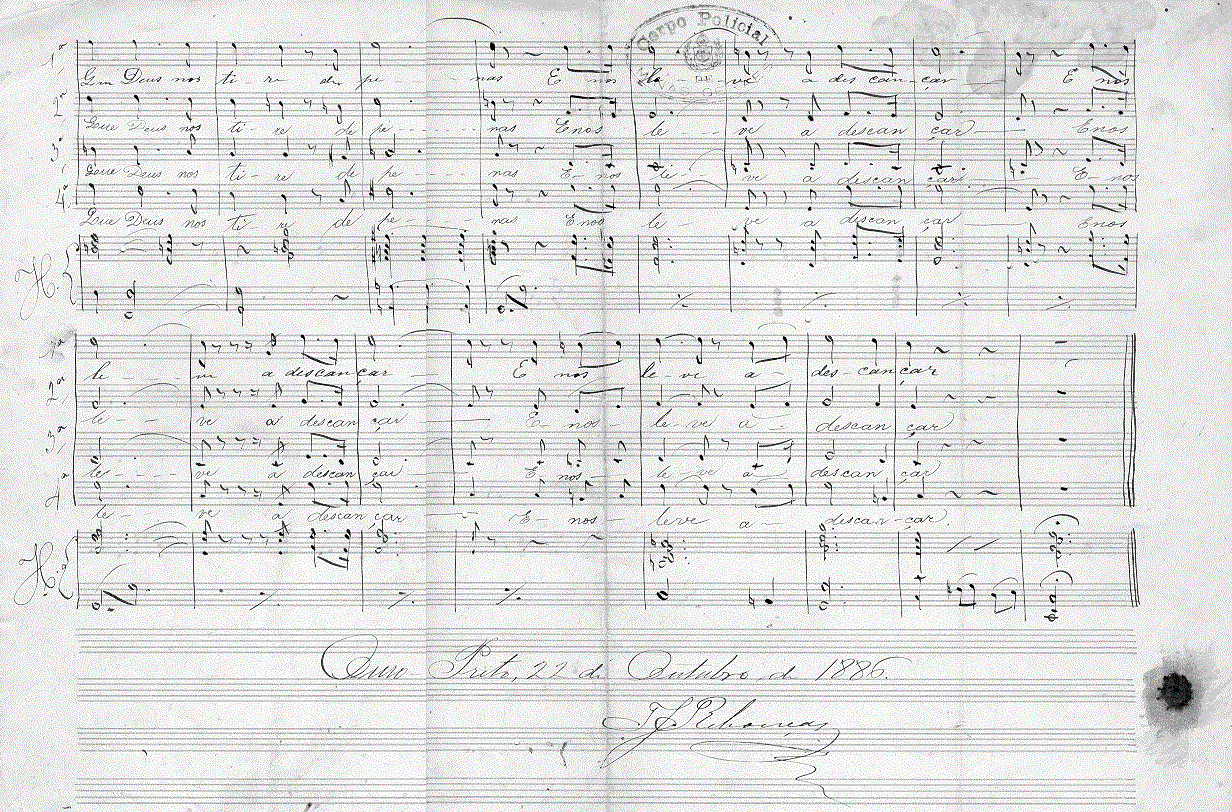 Corpo Policial
DE
1ª
Que Deus nos ti- re de pe - - - - nas E nos le - - ve a des can- çar E nos
2ª
Que Deus nos ti- re de pe - - - - nas E nos le - - ve a descan çar E nos
3ª
Que Deus nos ti- re de pe - - - - nas E- nos le- - ve a descan çar E- nos
4ª
Que Deus nos ti- re de pe - - - - nas E nos le - - ve a descan çar E nos
H.
1ª
le ve a descan çar E nos le-ve a - des-can çar
2ª
le- - - ve a descan çar E- nos- le-ve a- descan çar
3ª
le- - - - ve a descan çar E nos- le-ve a- descan çar
4ª
le- - ve a descan çar E- nos- leve a- descan-çar.
H.
Ouro-Preto, 22 de Outubro de 1886.